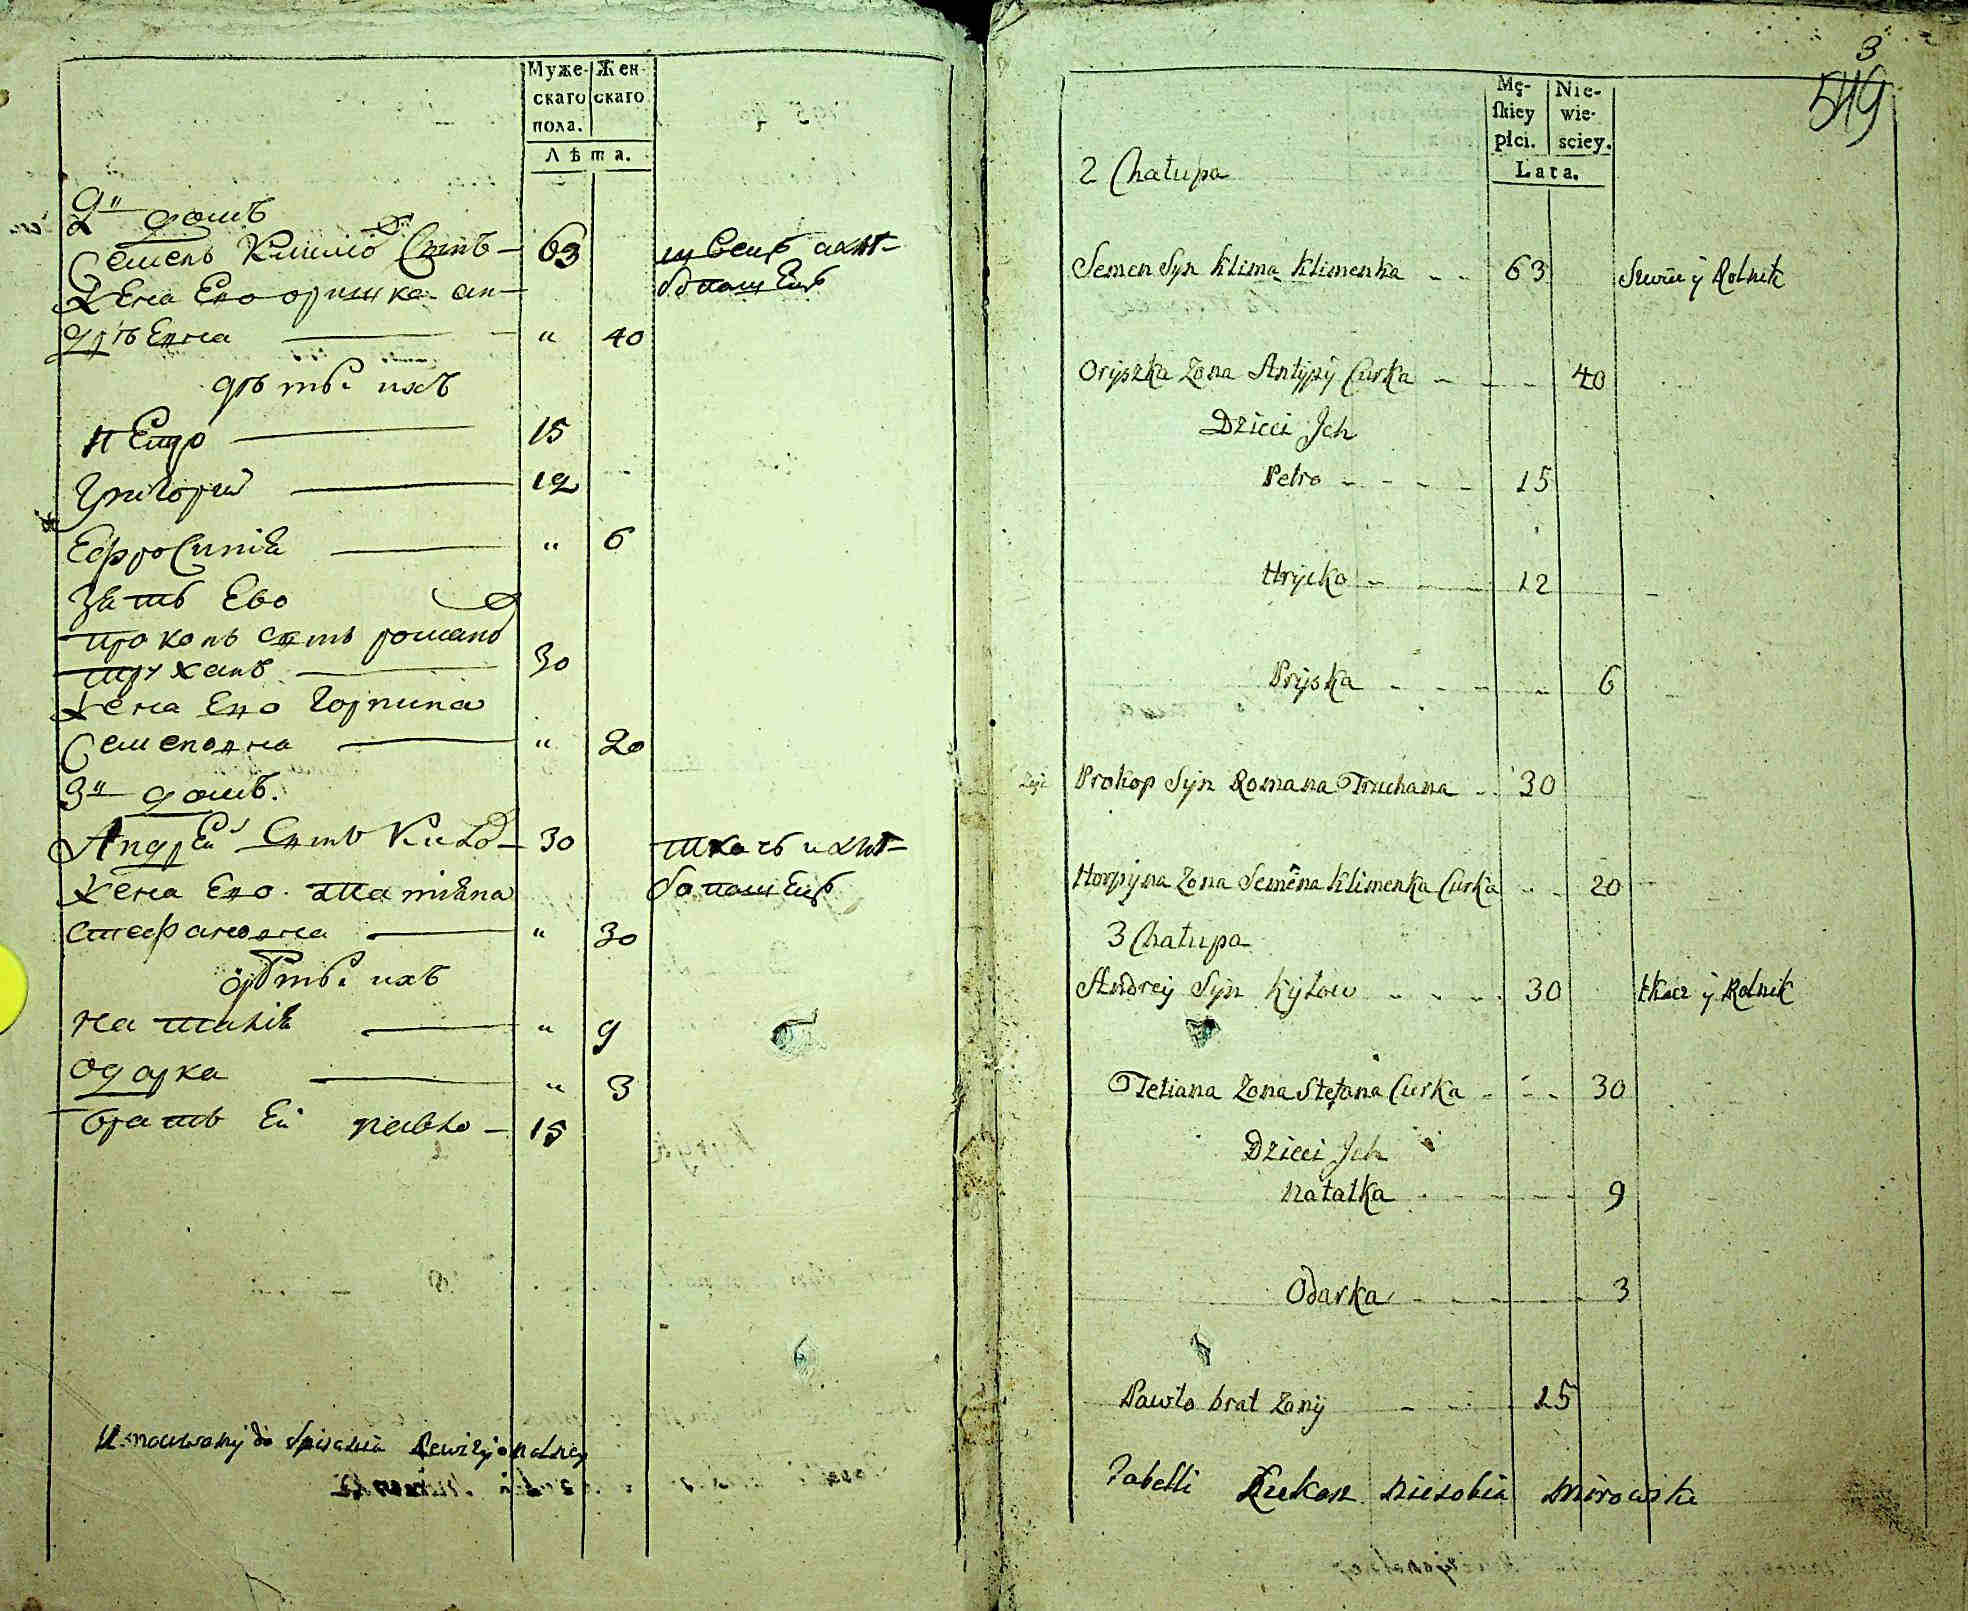 Муже- Жен-
скаго скаго
пола.
Лѣта.
2й домъ
Семенъ Климо Сынъ 63 швецъ и хлѣ-
Жена Ево оришка ан- бопашецъ
" 40
дѣти ихъ
Петро 15
Григорий 12
Ефросиния " 6
Зять Ево
прокопъ сынъ романа
труханъ 30
Жена Ево горпина
Семеновна " 20
3й домъ.
Андрей Сынъ Кило 30 ткачъ и хлѣ-
Жена Ево татияна бопашецъ
стефановна " 30
дѣти ихъ
наталия " 9
одарка " 3
братъ Ей павло 15
do Spisania Rewizyonalney
3
519
Mę- Nie-
skiey wie-
płci. sciey.
Lata.
2 Chałupa
Semen Syn Klima Klimenka 63 Szwiec y Rolnik
Oryszka Zona Antypy Curka 40
Dzieci Jch
Petro 15
Hrycko 12
Pryska 6
Prokop Syn Romana Truchana 30
Horpyna Zona Semena Klimenka Curka 20
3 Chałupa
Andrey Syn Kyłow 30 tkacz y Rolnik
Tetiana Zona Stefana Curka 30
Dzieci Jch
Natałka 9
Odarka 3
Pawło brat Zony 15
Tabelli Łukasz